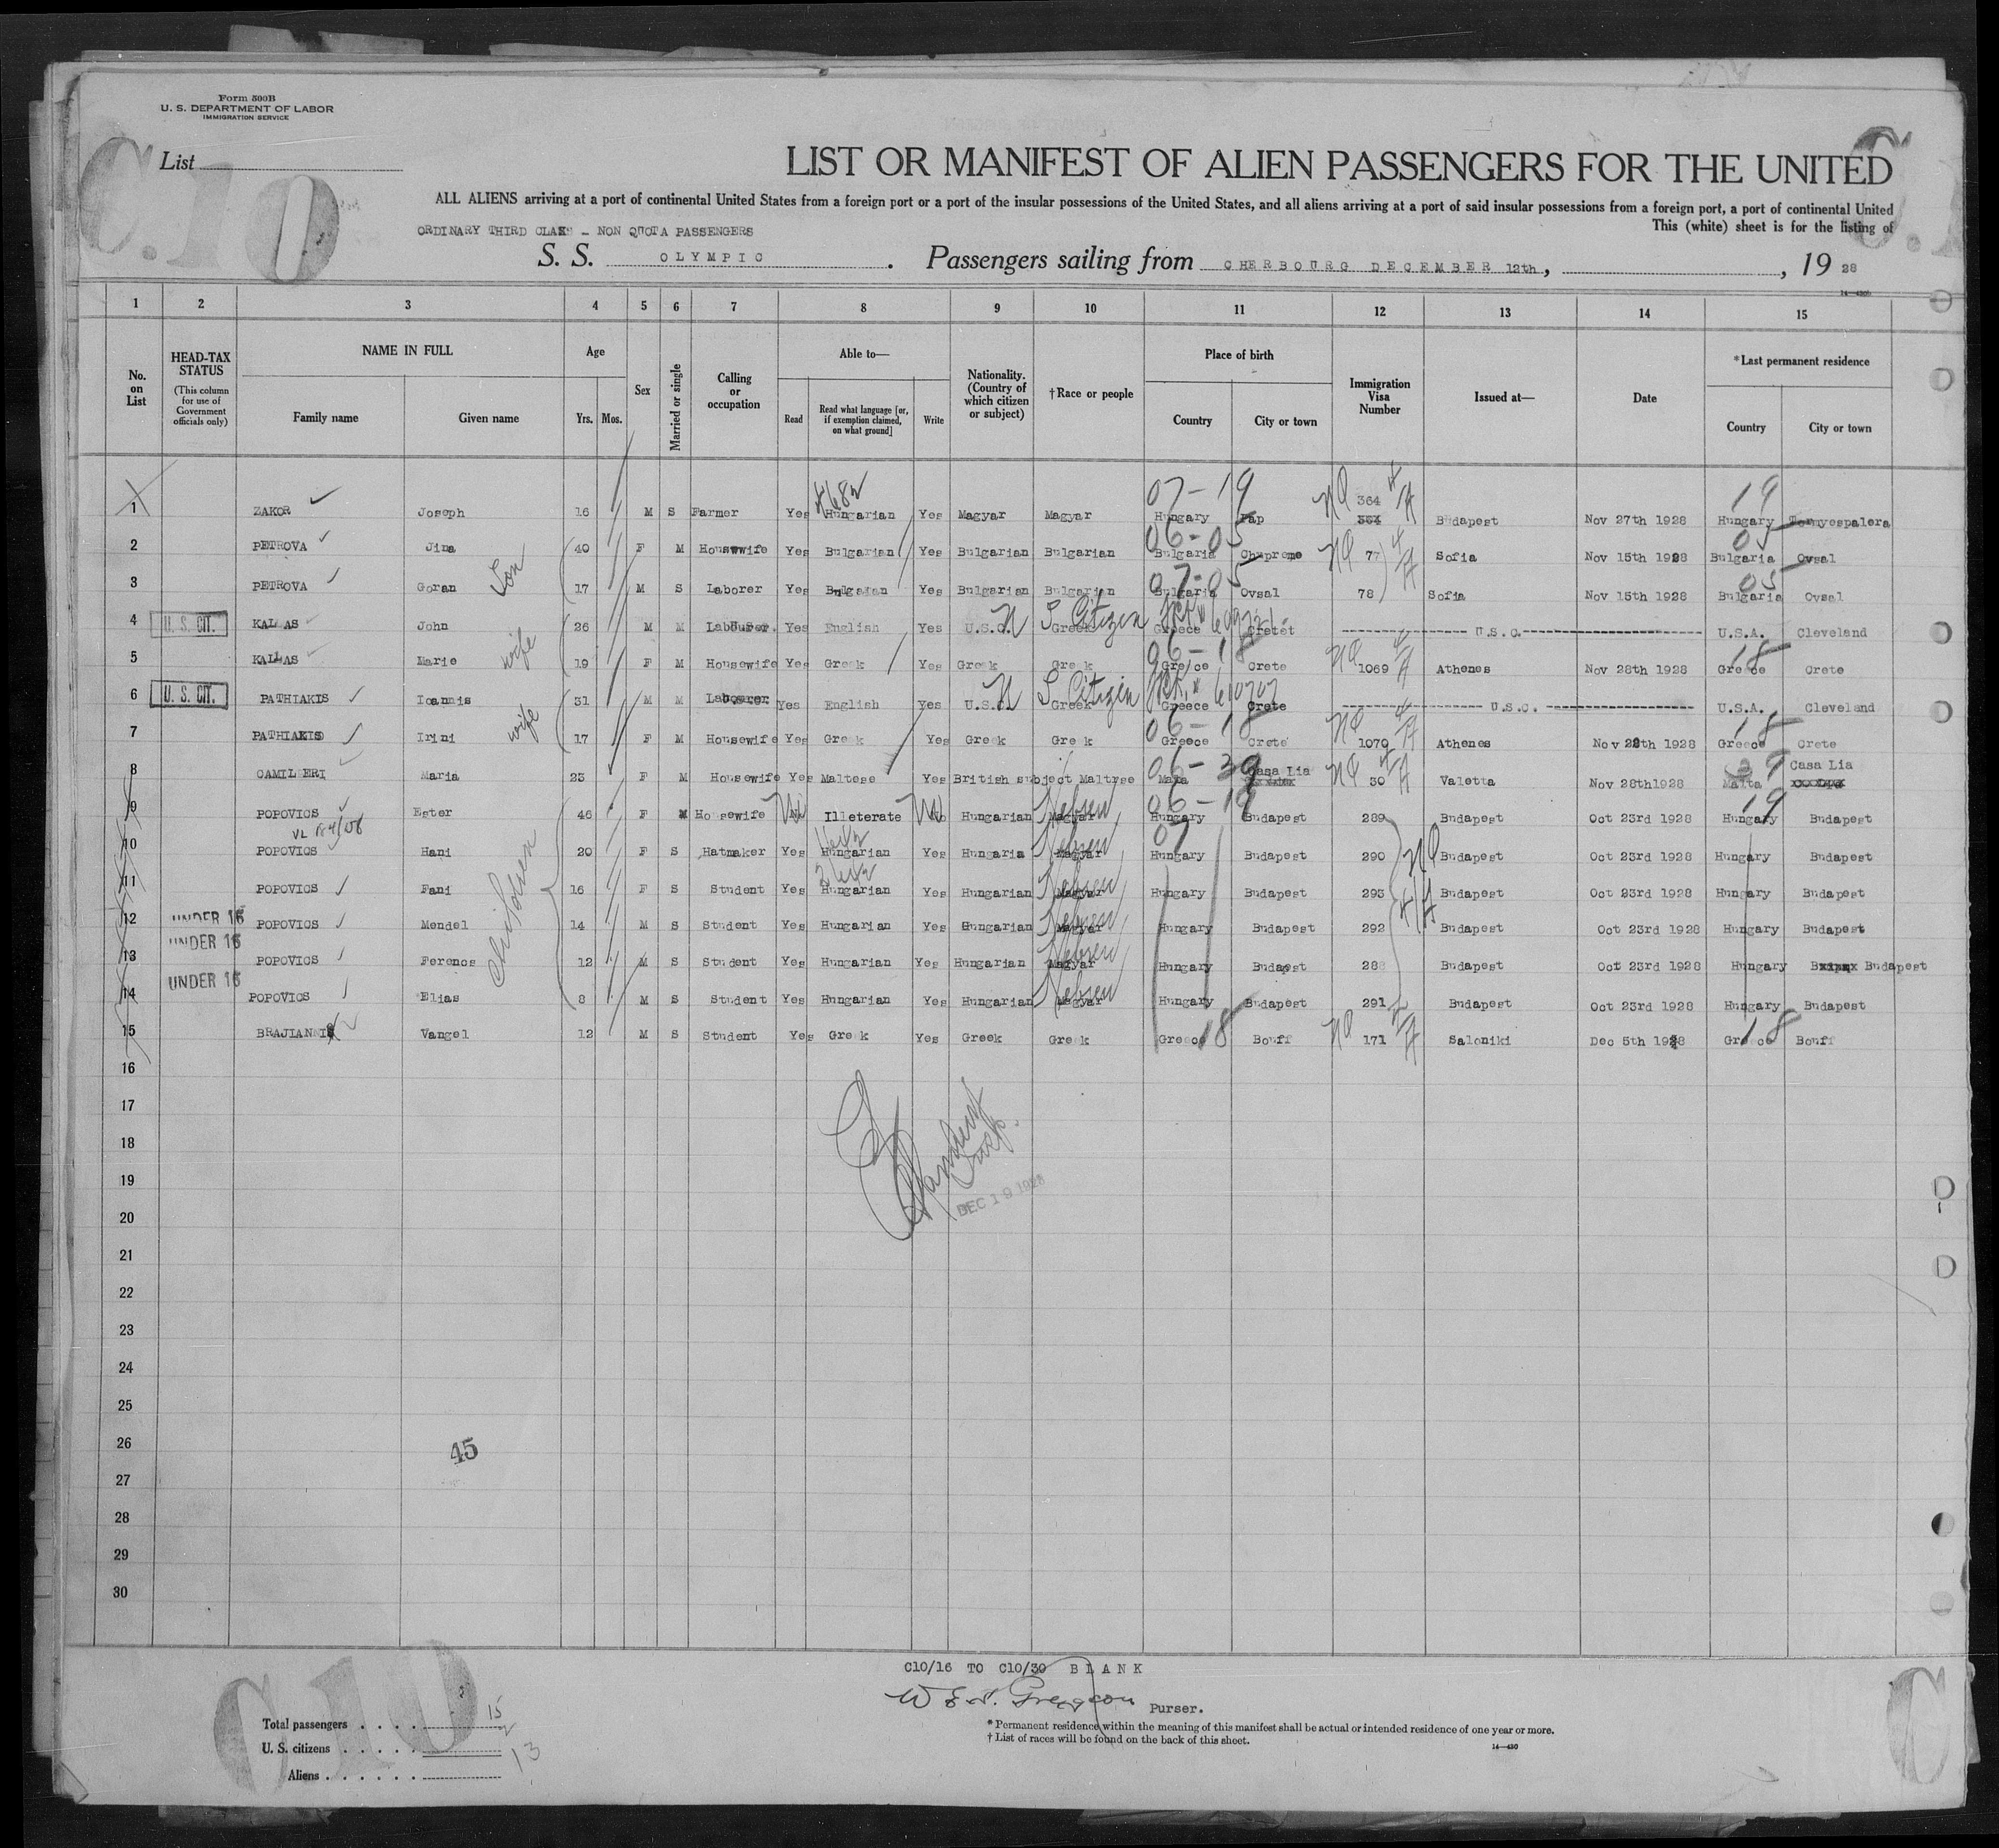 Form 500B
U. S. DEPARTMENT OF LABOR
IMMIGRATION SERVICE
C.10
List
LIST OR MANIFEST OF ALIEN PASSENGERS FOR THE UNITED
ALL ALIENS arriving at a port of continental United States from a foreign port or a port of the insular possessions of the United States, and all aliens arriving at a port of said insular possessions from a foreign port, a port of continental United
This (white) sheet is for the listing of
ORDINARY THIRD CLASS - NON QUOTA PASSENGERS
S. S. OLYMPIC . Passengers sailing from CHERBOURG DECEMBER 12th, , 19 28
1 2 3 4 5 6 7 8 9 10 11 12 13 14 15
No. on List
HEAD-TAX STATUS (This column for use of Government officials only)
NAME IN FULL Family name Given name
Age Yrs. Mos.
Sex
Married or single
Calling or occupation
Able to— Read Read what language [or, if exemption claimed, on what ground] Write
Nationality. (Country of which citizen or subject)
†Race or people
Place of birth Country City or town
Immigration Visa Number
Issued at—
Date
*Last permanent residence Country City or town
07-19 NQ 364 19
1 ZAKOR Joseph 16 M S Farmer Yes Hungarian Yes Magyar Magyar Hungary Pap Budapest Nov 27th 1928 Hungary
06-05 05
2 PETROVA Jina 40 F M Housewife Yes Bulgarian Yes Bulgarian Bulgarian Bulgaria NQ 77 Sofia Nov 15th 1928 Bulgaria Ovsal
07-05 05
3 PETROVA Goran Son 17 M S Laborer Yes Bulgaian Yes Bulgarian Bulgarian Bulgaria Ovsal 78 Sofia Nov 15th 1928 Bulgaria Ovsal
4 U. S. CIT. KALLAS John 26 M M Labourer. Yes English Yes U.S.C. Greek U S Citizen Greece U.S.C. U.S.A. Cleveland
06-18 18
5 KALLAS Marie wife 19 F M Housewife Yes Greek Yes Greek Greek Greece Crete NQ 1069 Athenes Nov 28th 1928 Greece Crete
6 U. S. CIT. PATHIAKIS Ioannis 31 M M Laborer Yes English Yes U.S.C. Greek U S Citizen Greece Crete U.S.C. U.S.A. Cleveland
06-18 18
7 PATHIAKIS Irini wife 17 F M Housewife Yes Greek Yes Greek Greek Greece Crete NQ 1070 Athenes Nov 28th 1928 Greece Crete
06-39
8 CAMILERI Maria 23 F M Housewife Yes Maltese Yes British subject Maltese Casa Lia NQ 30 Valetta Nov 28th1928 Malta Casa Lia
06-19 19
9 POPOVICS Ester 46 F M Housewife No Illeterate No Hungarian Magyar Hebrew Hungary Budapest 289 Budapest Oct 23rd 1928 Hungary Budapest
07
10 POPOVICS Hani 20 F S Hatmaker Yes Hungarian Yes Hungaria Magyar Hebrew Hungary Budapest 290 NQ Budapest Oct 23rd 1928 Hungary Budapest
11 POPOVICS Fani children 16 F S Student Yes Hungarian Yes Hungarian Magyar Hebrew Hungary Budapest 293 Budapest Oct 23rd 1928 Hungary Budapest
12 UNDER 16 POPOVICS Mendel 14 M S Student Yes Hungarian Yes Hungarian Magyar Hebrew Hungary Budapest 292 Budapest Oct 23rd 1928 Hungary Budapest
13 UNDER 16 POPOVICS Ferencs 12 M S Student Yes Hungarian Yes Hungarian Magyar Hebrew Hungary Budapest 288 Budapest Oct 23rd 1928 Hungary Budapest
14 UNDER 16 POPOVICS Elias 8 M S Student Yes Hungarian Yes Hungarian Magyar Hebrew Hungary Budapest 291 Budapest Oct 23rd 1928 Hungary Budapest
15 BRAJIANNIS Vangel 12 M S Student Yes Greek Yes Greek Greek Greece 18 Bouff NQ 171 Saloniki Dec 5th 1928 Greece 18 Bouff
16
17
18
19
DEC 19 1928
20
21
22
23
24
25
26
45
27
28
29
30
C10/16 TO C10/30 BLANK
Purser.
C10
Total passengers 15
U. S. citizens 2
Aliens 13
* Permanent residence within the meaning of this manifest shall be actual or intended residence of one year or more.
† List of races will be found on the back of this sheet.
14—430